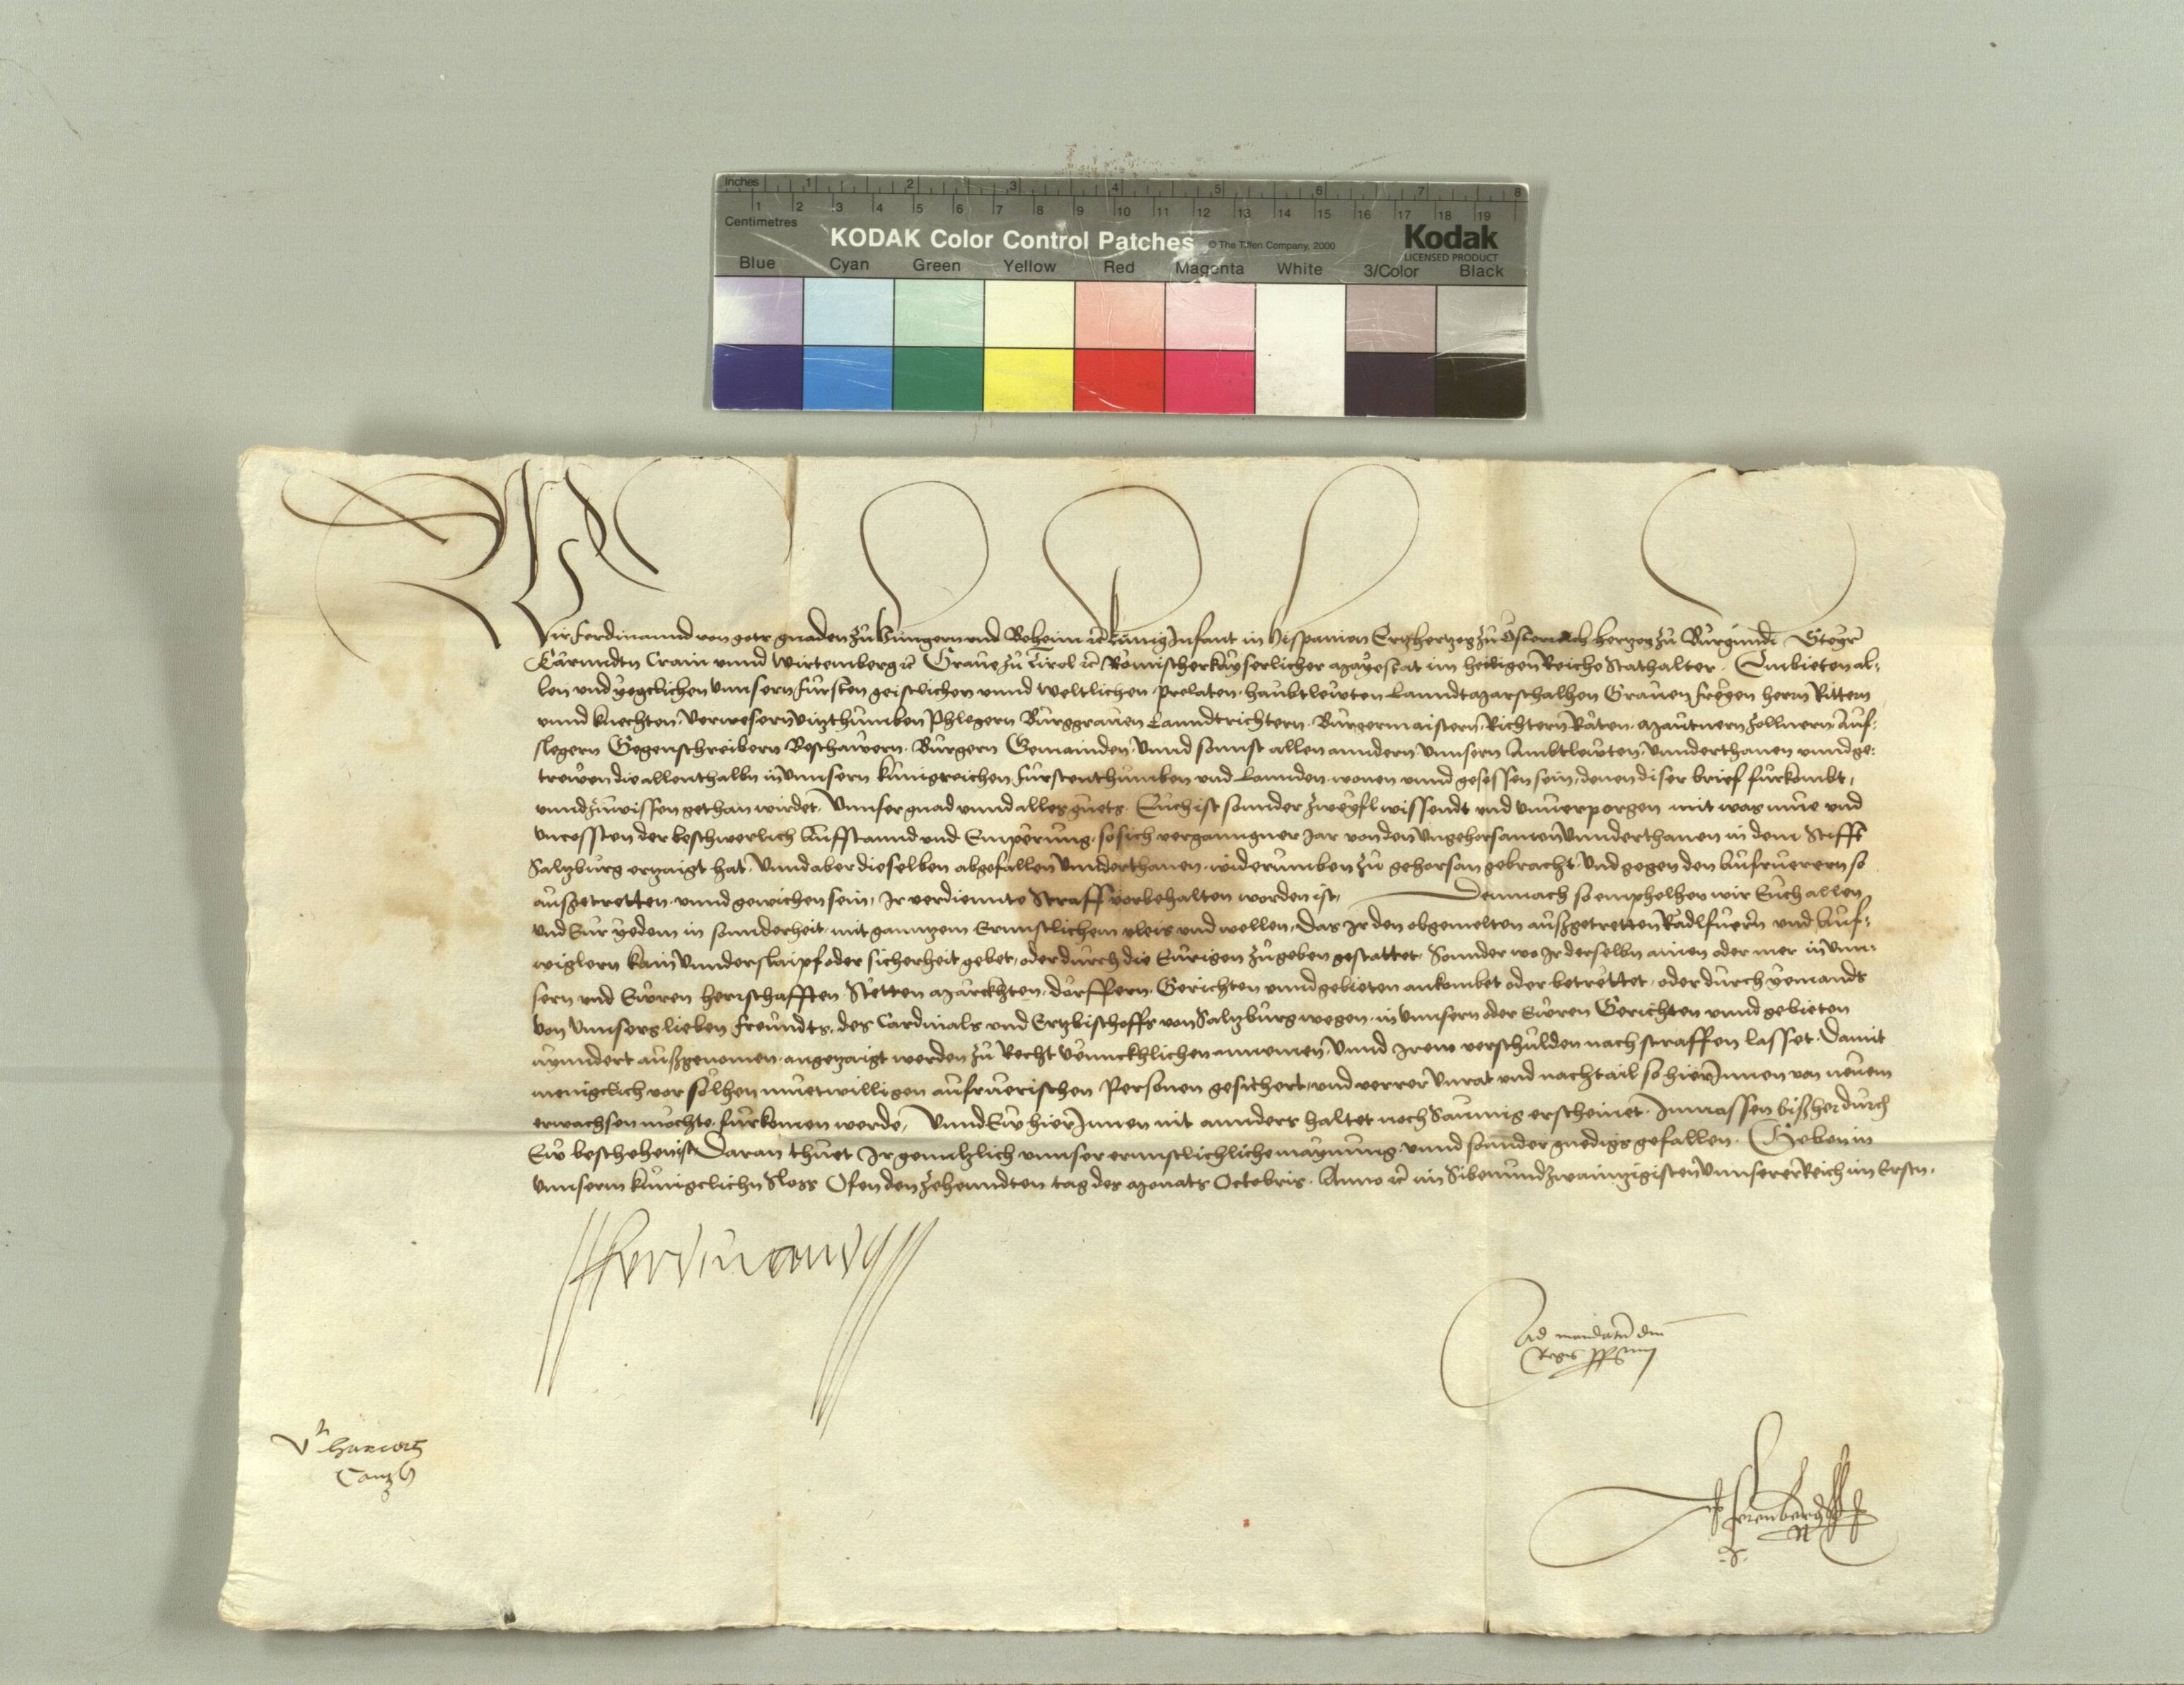 Inches 1 2 3 4 5 6 7 8
1 2 3 4 5 6 7 8 9 10 11 12 13 14 15 16 17 18 19
Centimetres
KODAK Color Control Patches © The Tiffen Company, 2000 Kodak
LICENSED PRODUCT
Blue Cyan Green Yellow Red Magenta White 3/Color Black
Wir Ferdinannd von gots gnaden zů Hungern vnd Beheim ꝛc Kunig Infant in Hispanien Ertzhertzog zů Österreich Hertzog zů Burgundi Steyr
Kärnndtn Crain vnnd Wirtemberg ꝛc Graue zů Tirol ꝛc Römischer kayserlicher Mayestat im heiligen Reiche Stathalter. Embieten al-
len vnd yegclichen vnnsern fürsten geistlichen vnnd weltlichen prelaten haubtlewten Lanndtmarschalhen Grauen freyen herrn Rittern
vnnd knechten, Verwesern Vitzthumben Phlegern Burggrauen Lanndtrichtern Burgermaistern Richtern Räten Mautnern Zollnern Auf-
slegern Gegenschreibern Beschawern. Burgern Gemainden, Vnnd sonnst allen anndern vnnsern Ambtlewten, vnnderthanen vnnd ge-
trewen die allenthalbn in vnnsern künigreichen Fürstenthumben vnd Lannden wonen vnnd gesessen sein, denen diser brief fürkombt,
vnnd zůwissen gethan wirdet. Vnnser gnad vnnd alles guets. Euch ist sonnder zweyfl wissendt vnd vnuerporgen mit was müe vnd
vncossten der beschwerlich Aufstannd vnd Emperung, so sich verganngner Jar von den vngehorsamen vnnderthanen in dem Stifft
Saltzburg ertzaigt hat, Vnnd aber dieselben abgefallen Vnnderthanen widerumben zů gehorsam gebracht, Vnd gegen den Aufruerern so
außgetretten vnnd gewichen sein, Ir verdiennte Straff vorbehalten worden ist, Demnach so emphelhen wir Euch allen
vnd Eur yedem in sonnderheit, mit ganntzem Ernnstlichem vleis vnd wellen, Das Ir den obgemelten außgetretten Rädlfüern vnd Auf-
wiglern kain Vnnderslaipf oder sicherheit gebet, oder durch die Eurigen zůgeben gestattet, Sonnder wo Ir derselbn ainen oder mer in vnn-
sern vnd Ewren herrschafften Stetten Märckhten, dörffern, Gerichten vnnd gebieten ankombet oder betrettet, oder durch yemands
von vnnsers lieben Freundts, des Cardinals vnd Ertzbischoffs von Saltzburg wegen in vnnsern oder Ewren Gerichten vnnd gebieten
nynndert außgenomen angetzaigt werden zů Recht vennckhlichen annemen, Vnnd Irem verschulden nach straffen lasset. Damit
menigclich vor solhen muetwilligen aufruerischen Personen gesichert, vnd verrer vnrat vnd nachtail so hierInnen von newem
erwachsen möchte fürkomen werde, Vnnd Ew hierInnen nit annders haltet noch Saumig erscheinet. Inmassen bißher durch
Ew beschehen ist, Daran thuet Ir genntzlich vnnser ernnstlichliche maynung vnnd sonnder gnedigs gefallen. Geben in
vnnserm künigclichn Sloss Ofen den Zehenndten tag des Monats Octobris. Anno ꝛc im Sibenundzwaintzigisten vnnserer Reich im Ersten.
Ferdinand
Ad mandatū dni
Regis pp
Canzl